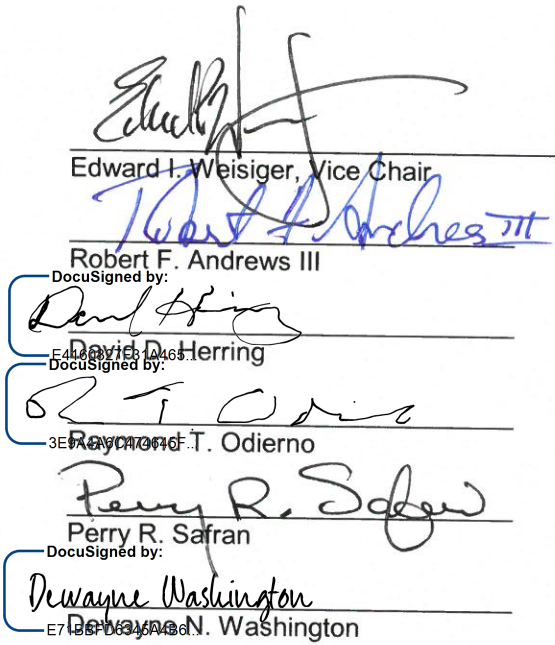 Edward I. Weisiger, Vice Chair
Robert F. Andrews III
Robert F. Andrews III
DocuSigned by:
David Herring
David D. Herring
E4160827F31A465...
DocuSigned by:
R T Odierno
Raymond T. Odierno
3E9A4A6C474646F...
Perry R. Safran
Perry R. Safran
DocuSigned by:
Dewayne Washington
Dewayne N. Washington
E71BBFD6345A4B6...